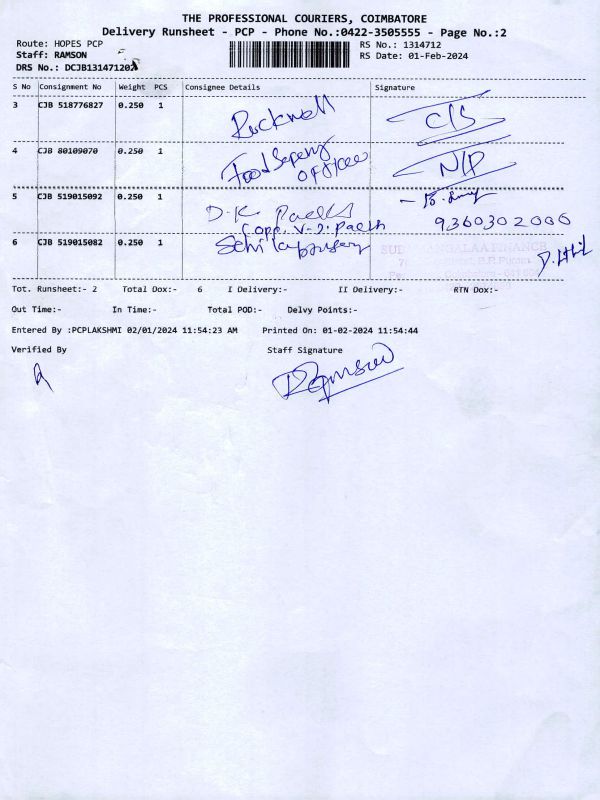 THE PROFESSIONAL COURIERS, COIMBATORE
Delivery Runsheet - PCP - Phone No.:0422-3505555 - Page No.:2
Route: HOPES PCP
Staff: RAMSON
DRS No.: DCJB13147120
RS No.: 1314712
RS Date: 01-Feb-2024
S No Consignment No Weight PCS Consignee Details Signature
3 CJB 518776827 0.250 1 Rockwell C/S
4 CJB 80109070 0.250 1 Food officer N/P
5 CJB 519015092 0.250 1 D.K
9360302006
6 CJB 519015082 0.250 1
Tot. Runsheet:- 2 Total Dox:- 6 I Delivery:- II Delivery:- RTN Dox:-
Out Time:- In Time:- Total POD:- Delvy Points:-
Entered By :PCPLAKSHMI 02/01/2024 11:54:23 AM Printed On: 01-02-2024 11:54:44
Verified By Staff Signature
Ramson